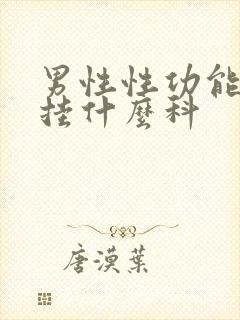 男性性功能
挂什麼科
唐漠葉